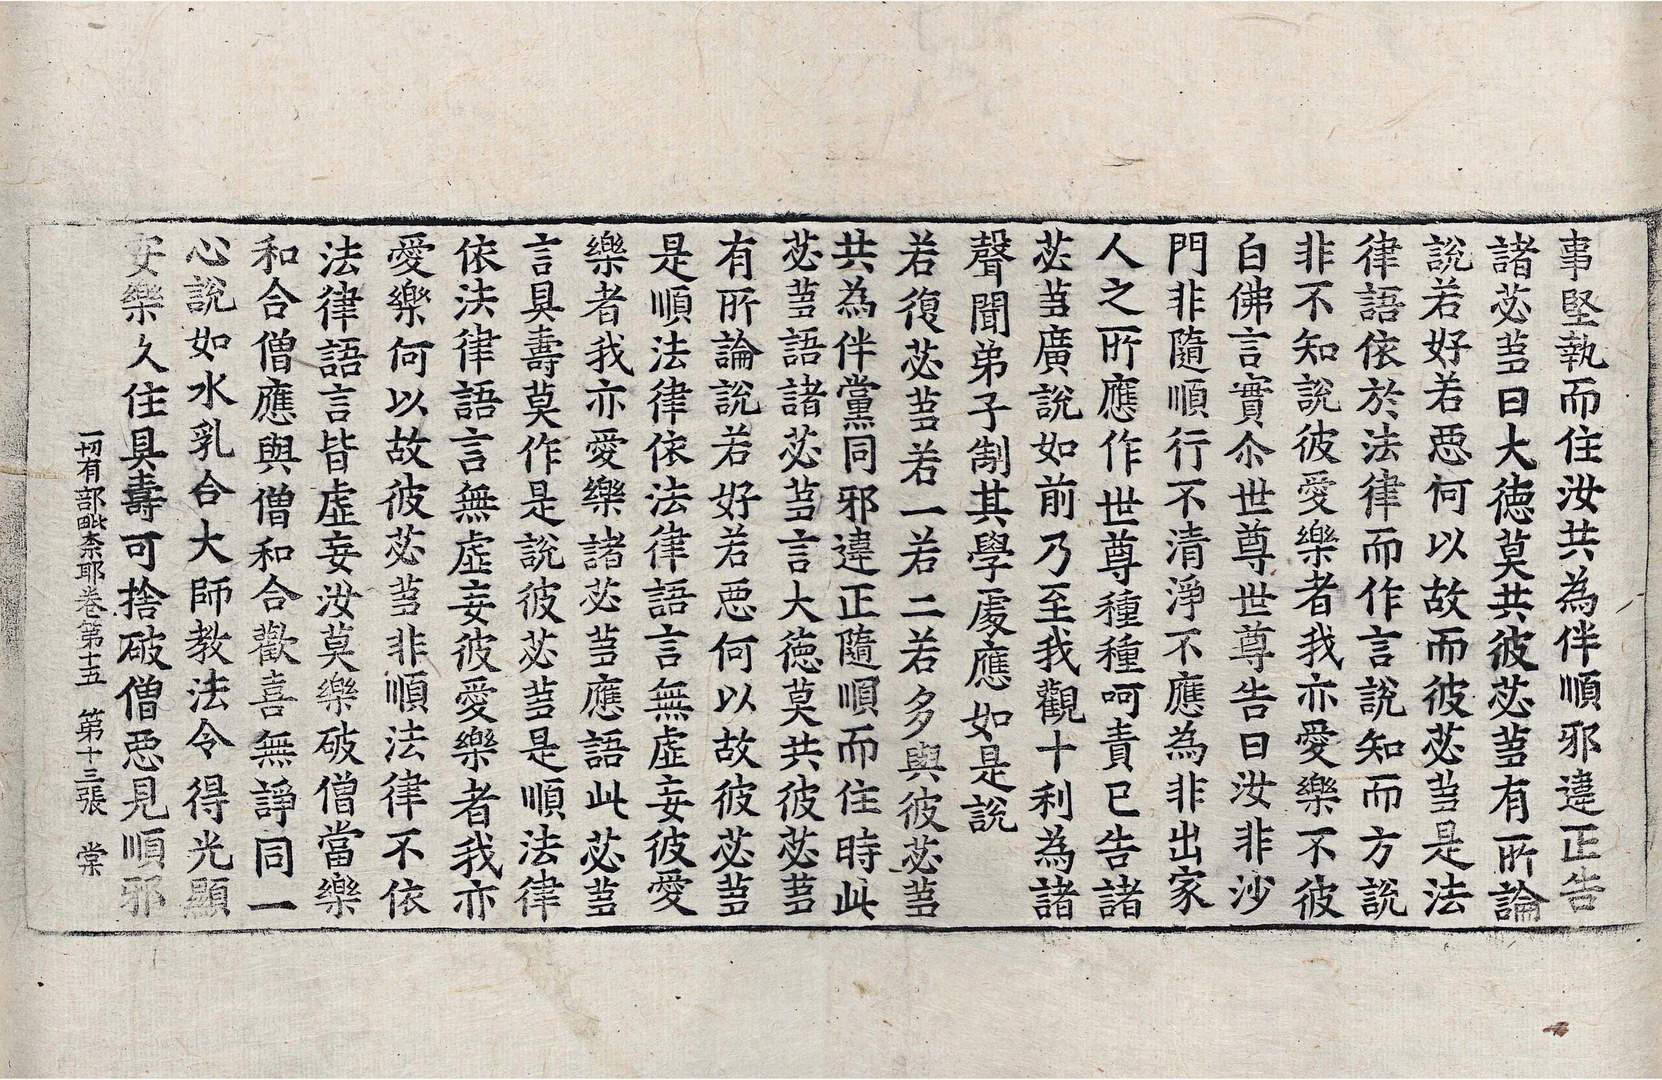 事堅執而住汝共為伴順邪違正告
諸苾芻曰大德莫共彼苾芻有所論
說若好若惡何以故而彼苾芻是法
律語依於法律而作言說知而方說
非不知說彼愛樂者我亦愛樂不彼
白佛言實尒世尊世尊告曰汝非沙
門非隨順行不清淨不應為非出家
人之所應作世尊種種呵責已告諸
苾芻廣說如前乃至我觀十利為諸
聲聞弟子制其學處應如是說
若復苾芻若一若二若多與彼苾芻
共為伴黨同邪違正隨順而住時此
苾芻語諸苾芻言大德莫共彼苾芻
有所論說若好若惡何以故彼苾芻
是順法律依法律語言無虛妄彼愛
樂者我亦愛樂諸苾芻應語此苾芻
言具壽莫作是說彼苾芻是順法律
依法律語言無虛妄彼愛樂者我亦
愛樂何以故彼苾芻非順法律不依
法律語言皆虛妄汝莫樂破僧當樂
和合僧應與僧和合歡喜無諍同一
心說如水乳合大師教法令得光顯
安樂久住具壽可捨破僧惡見順邪
一切有部毗柰耶卷第十五 第十三張 棠